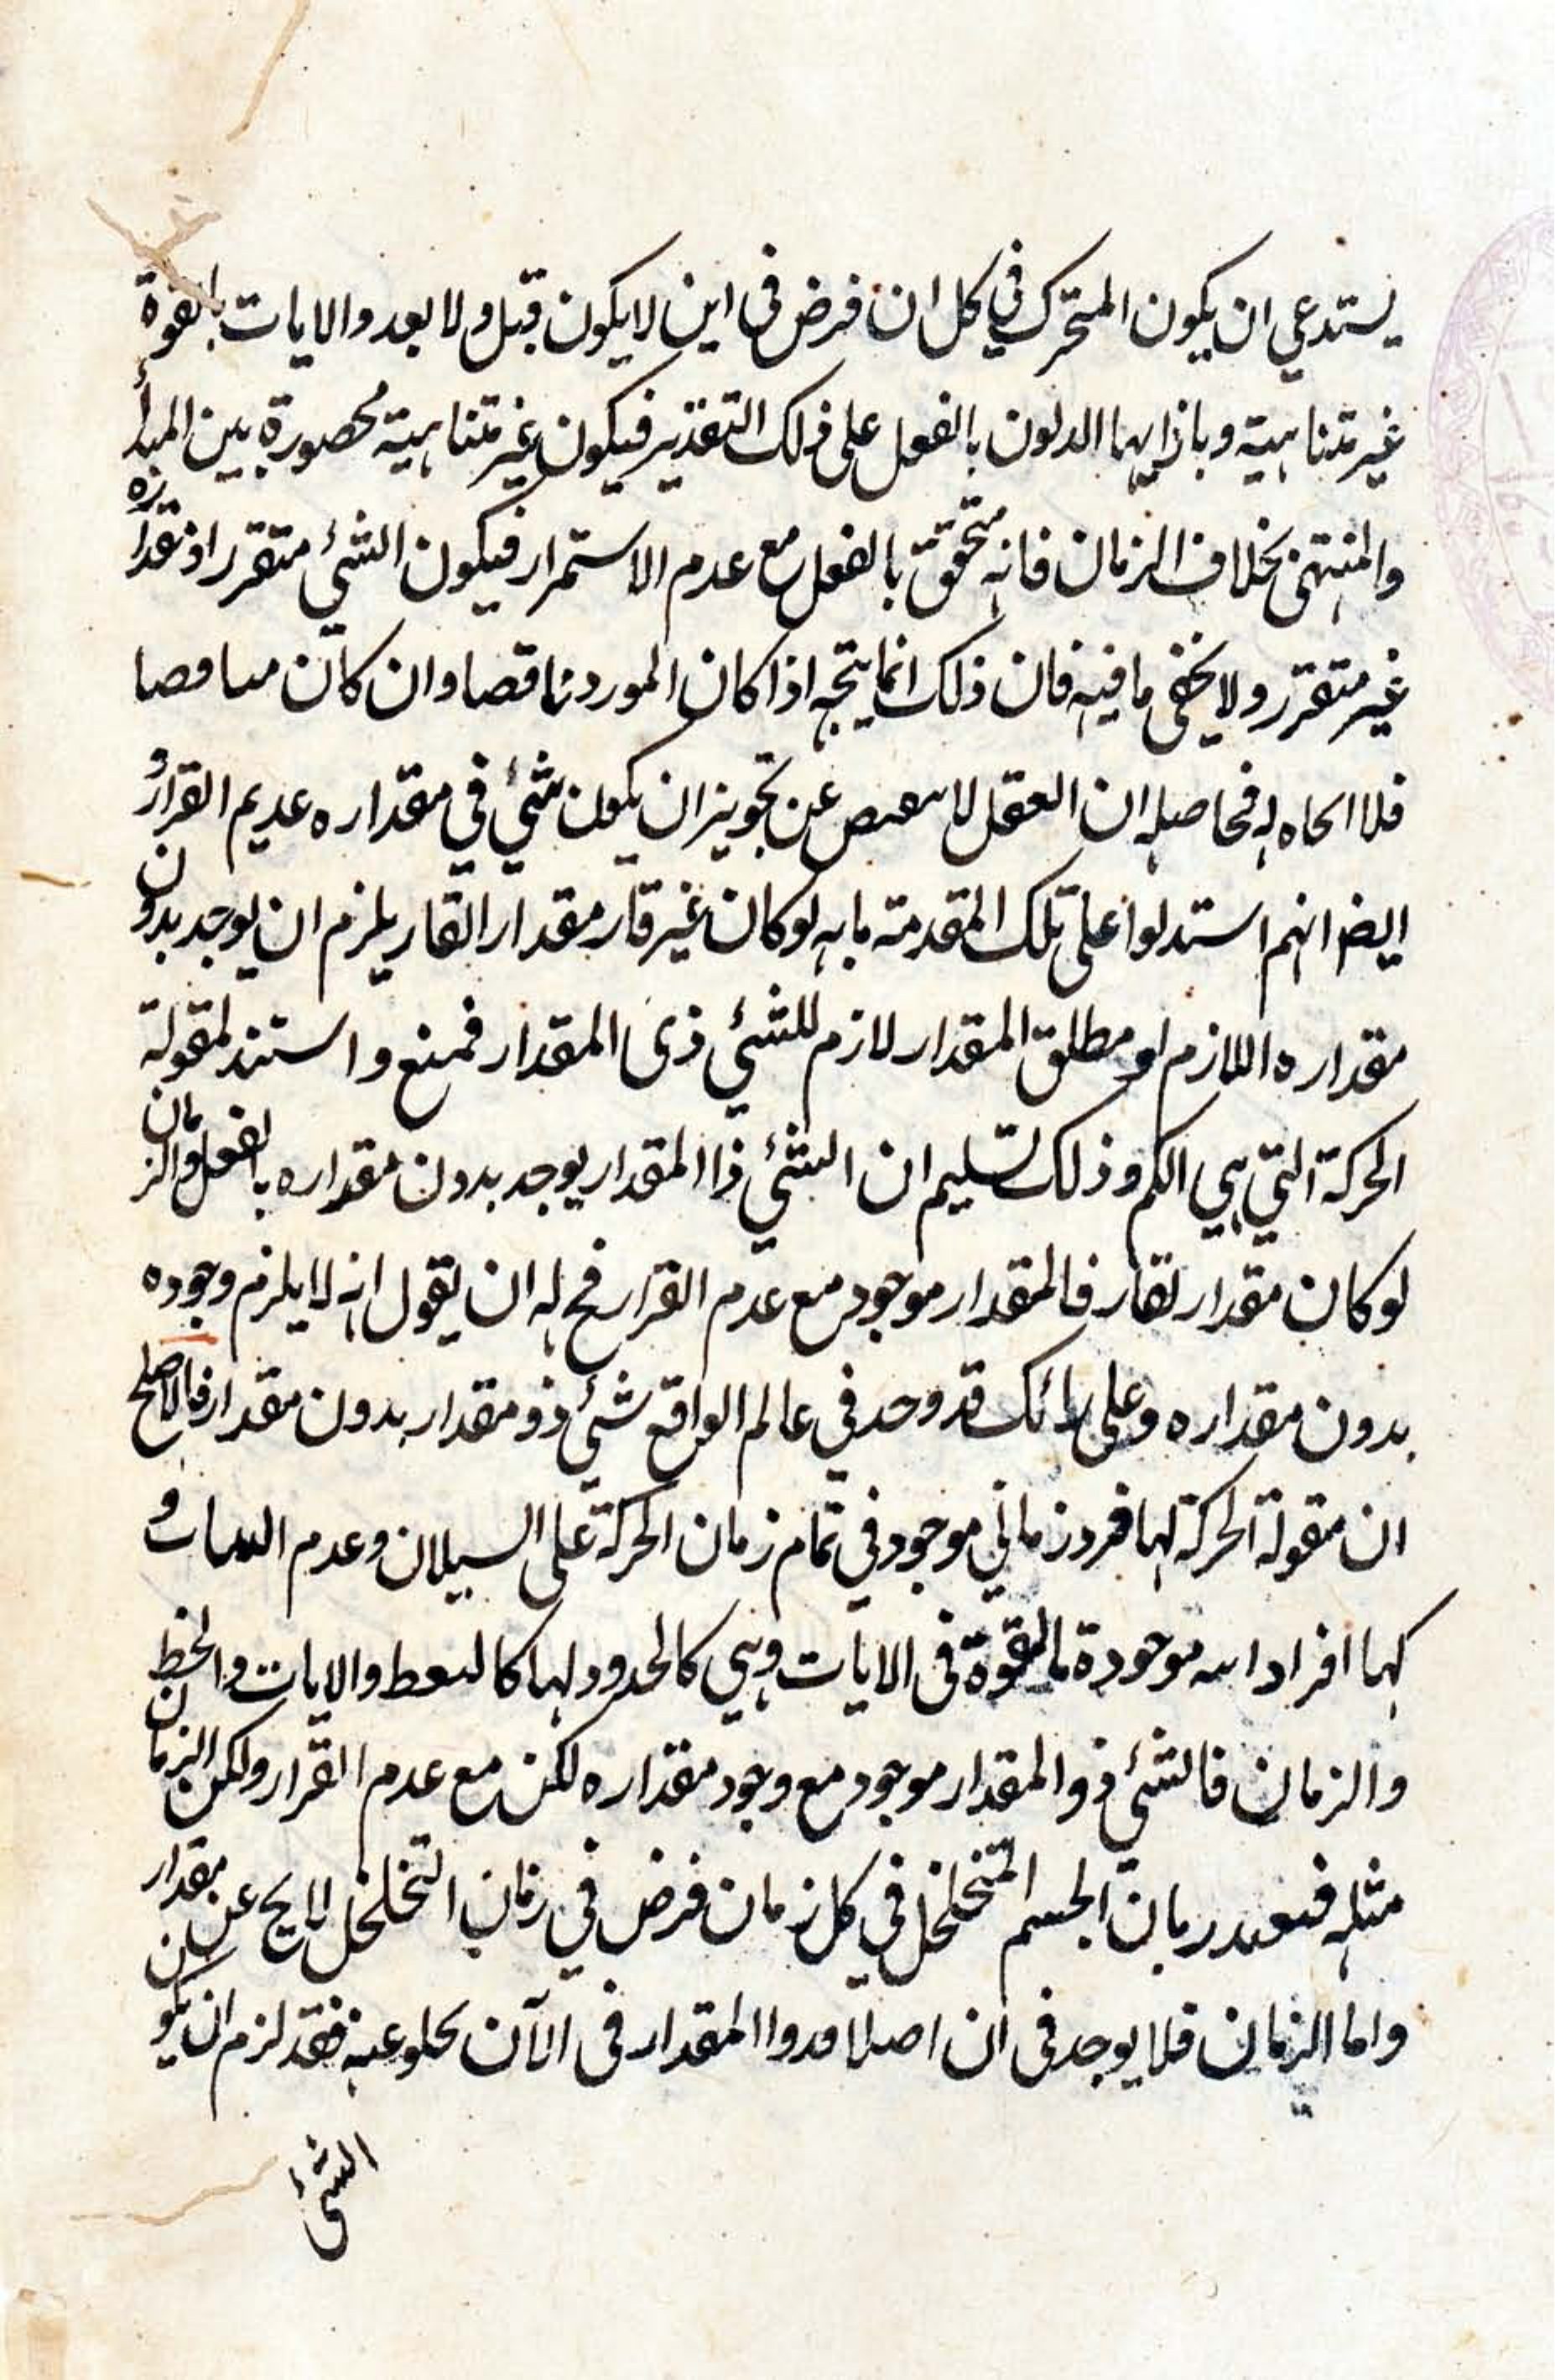 يستدعي ان يكون المتحرك في كل ان فرض في اين لا يكون قبل ولا بعد والايات بالقوة
غير متناهية وبازايهما الدلون بالفعل على ذلك التقدير فيكون غير متناهية محصورة بين المبدأ
والمنتهى بخلاف الزمان فانه متحقق بالفعل مع عدم الاستمرار فيكون الشئ متقررا ومقداره
غير متقرر ولا يخفى ما فيه فان ذلك انما يتجه اذا كان المورد ناقصا وان كان
فلا له فحاصله ان العقل لا عن تجويز ان يكون شئ في مقداره عديم القرار و
ايضا انهم استدلوا على تلك المقدمة بانه لو كان غير قار مقدار القار يلزم ان يوجد بدون
مقداره اللازم او مطلق المقدار لازم للشئ ذى المقدار فمنع واستند لمقولة
الحركة التي هي الكم وذلك تسليم ان الشئ ذا المقدار يوجد بدون مقداره بالفعل والزمان
لو كان مقدار لقار فالمقدار موجود مع عدم القرار فح له ان يقول انه لا يلزم وجوده
بدون مقداره وعلى رائك قد وجد في عالم الواقع شئ ذو مقدار بدون مقدار فالاصلح
ان مقولة الحركة لها فرد زماني موجود في تمام زمان الحركة على السيلان وعدم الثبات و
لها افراد انية موجودة بالقوة في الايات وهي كالحدود لها كالنقط والايات والخط
والزمان فالشئ ذو المقدار موجود مع وجود مقداره لكن مع عدم القرار ولكن الزمان
مثله الجسم المتخلخل في كل زمان فرض في زمان التخلخل لا يخ عن مقدار
واما الزمان فلا يوجد في ان اصلا وذوا المقدار في الآن يخلو عنه فقد لزم ان يكون
الشئ